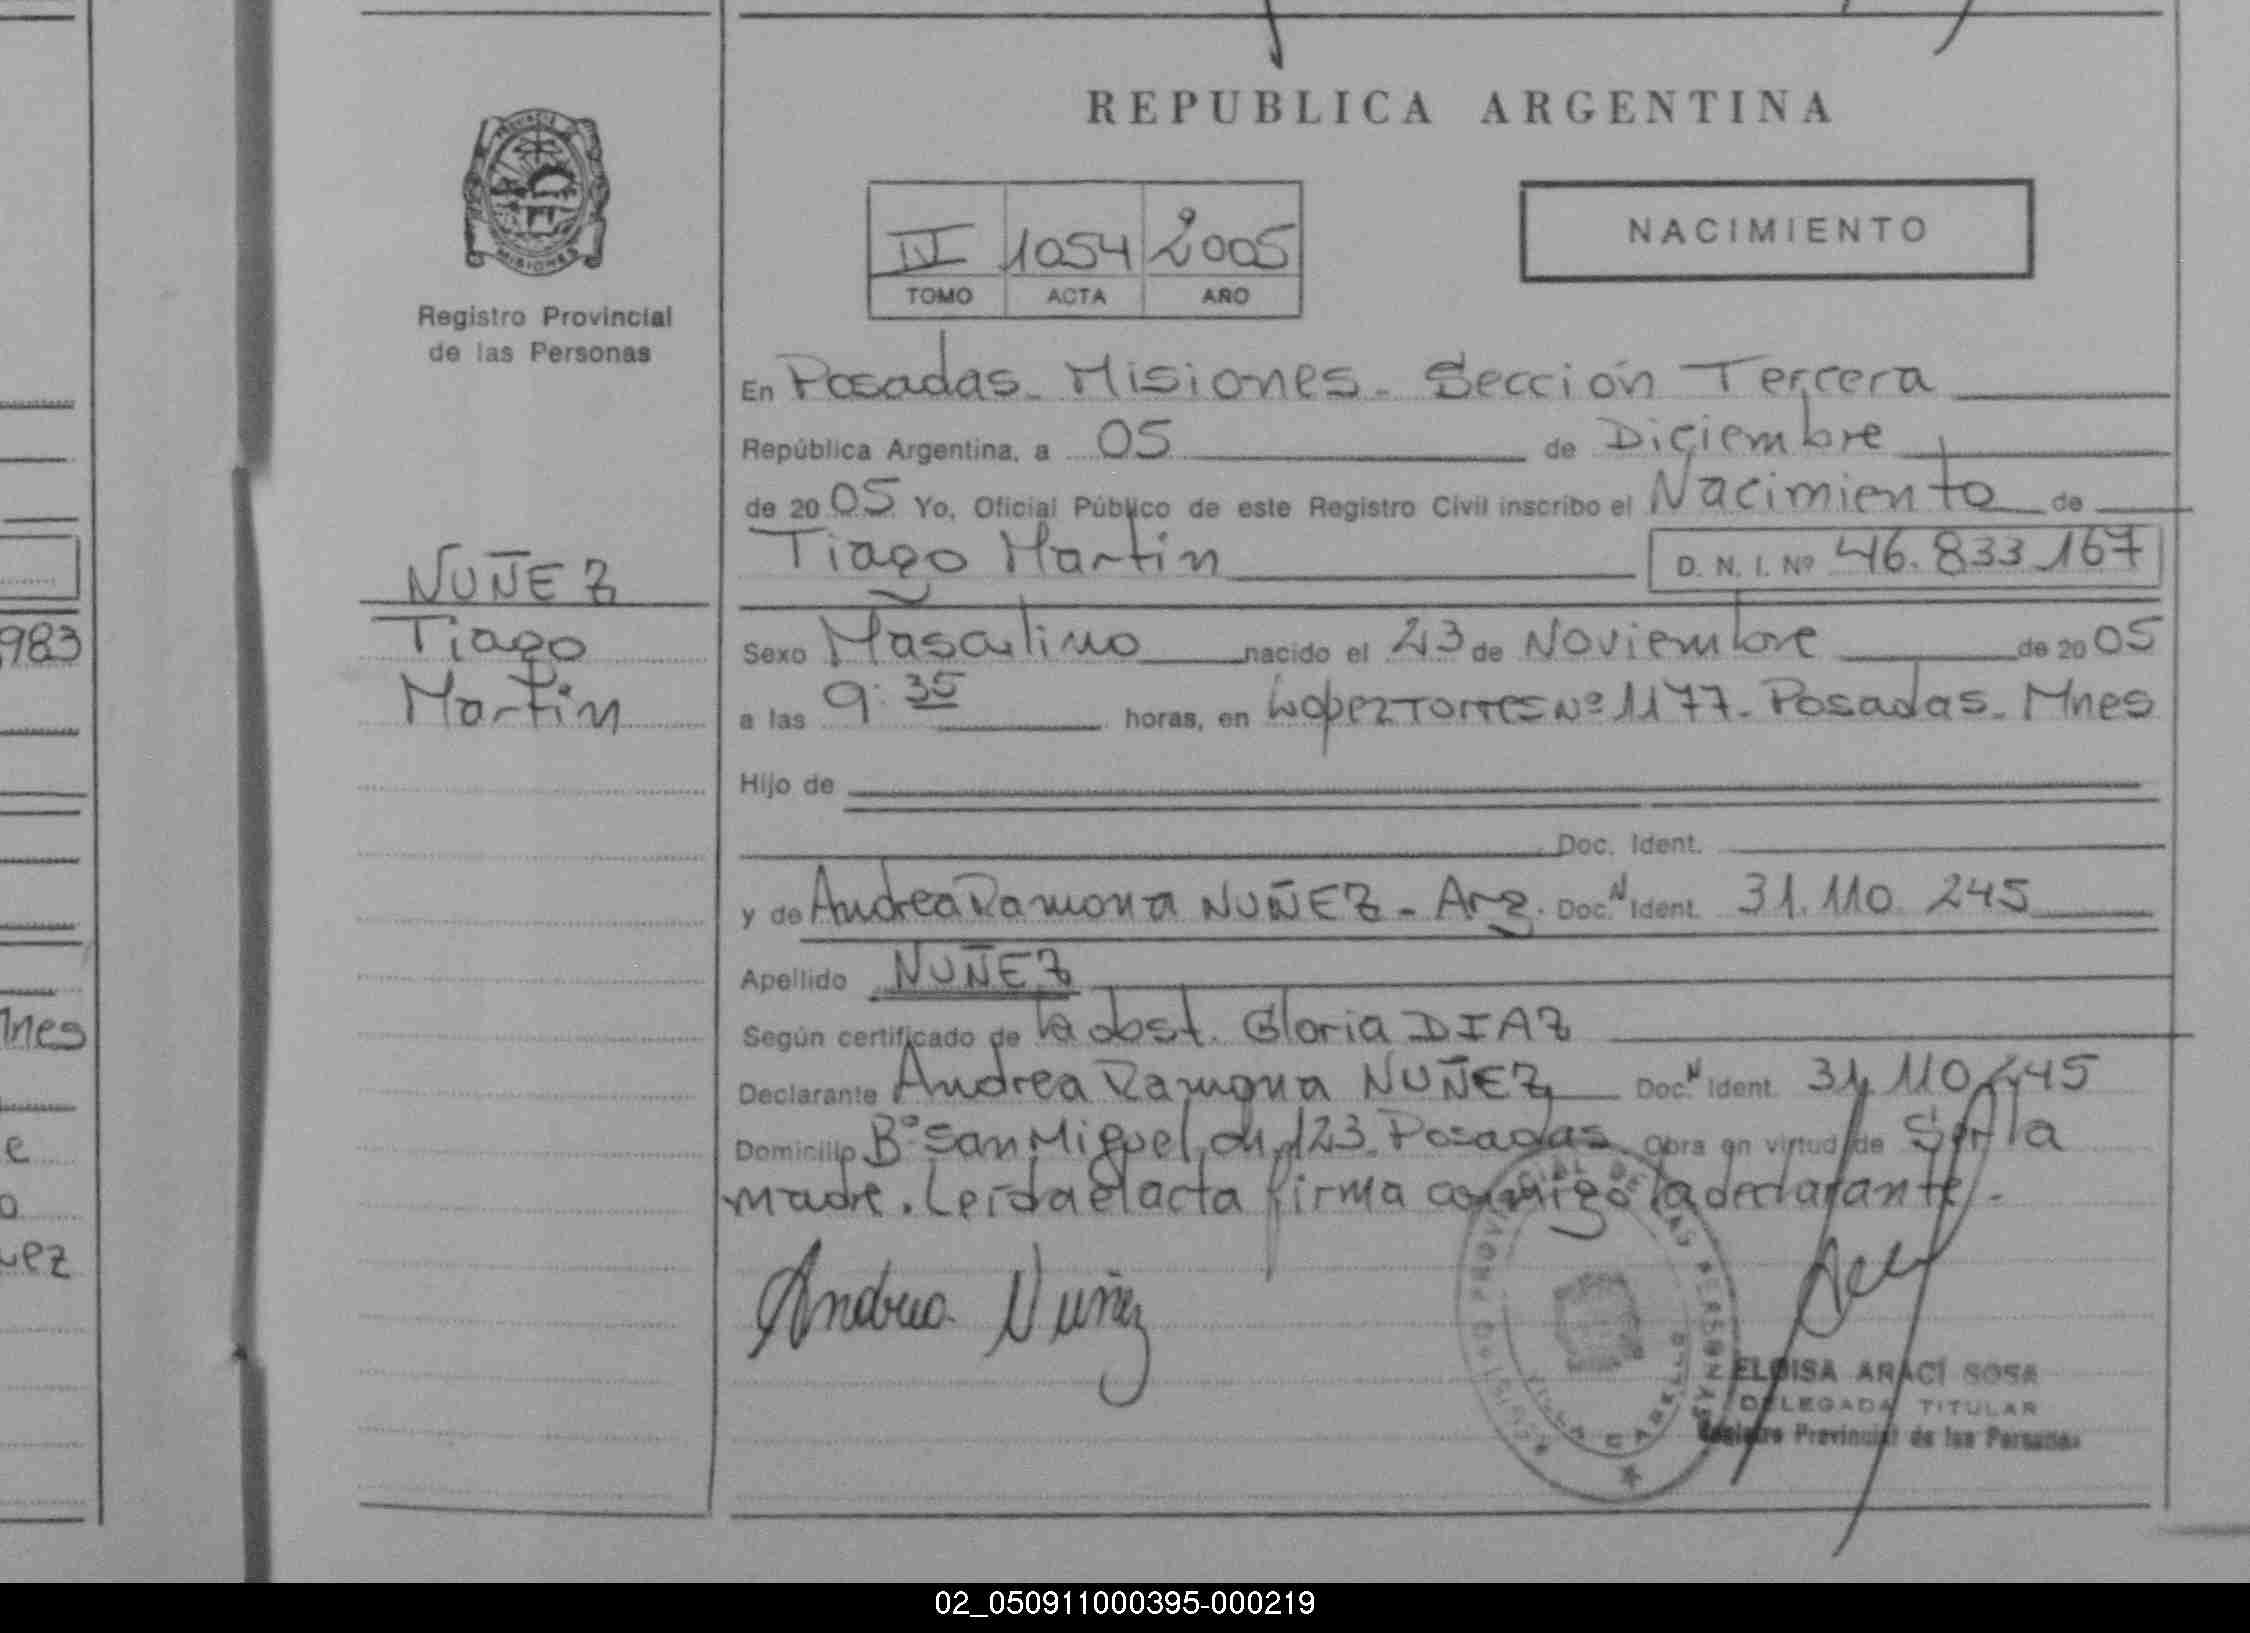 REPUBLICA ARGENTINA
PROVINCIA DE
MISIONES
Registro Provincial
de las Personas
IV 1054 2005
TOMO ACTA AÑO
NACIMIENTO
En Posadas - Misiones - Sección Tercera
República Argentina, a 05 de Diciembre
de 2005 Yo, Oficial Público de este Registro Civil inscribo el Nacimiento de
Tiago Martin D. N. I. Nº 46.833.167
NUÑEZ
Tiago
Martin
Sexo Masculino nacido el 23 de Noviembre de 2005
a las 9:35 horas, en Lopez Torres Nº 1177 - Posadas - Mnes
Hijo de
Doc. Ident.
y de Andrea Ramona NUÑEZ - Arg. Doc. N Ident. 31.110.245
Apellido NUÑEZ
Según certificado de la obst. Gloria DIAZ
Declarante Andrea Ramona NUÑEZ Doc. N Ident. 31.110.245
Domicilio Bº San Miguel, ch 123 - Posadas Obra en virtud de Ser la
madre. Leída el acta firma conmigo la declarante.
Andrea Nuñez
ELOISA ARACÍ SOSA
DELEGADA TITULAR
Registro Provincial de las Personas
983
Mnes
e
o
uez
02_050911000395-000219